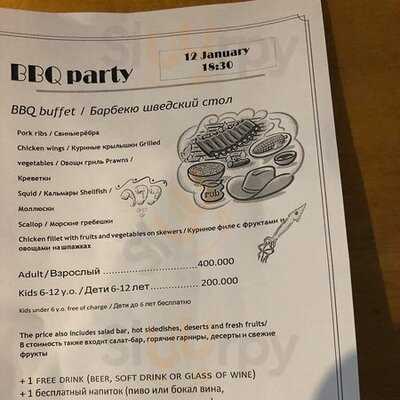 BBQ party
12 January
18:30
BBQ buffet / Барбекю шведский стол
Pork ribs / Свиныерёбра
Chicken wings / Куриные крылышки Grilled
vegetables / Овощи гриль Prawns /
Креветки
Squid / Кальмары Shellfish /
Моллюски
Scallop / Морские гребешки
Chicken fillet with fruits and vegetables on skewers / Куриное филе с фруктами и
овощами на шпажках
rub
Adult / Взрослый ............................ 400.000
Kids 6-12 y.o. / Дети 6-12 лет............... 200.000
Kids under 6 y.o. free of charge / Дети до 6 лет бесплатно
The price also includes salad bar, hot sidedishes, deserts and fresh fruits/
В стоимость также входит салат-бар, горячие гарниры, десерты и свежие
фрукты
+ 1 FREE DRINK (BEER, SOFT DRINK OR GLASS OF WINE)
+ 1 бесплатный напиток (пиво или бокал вина,